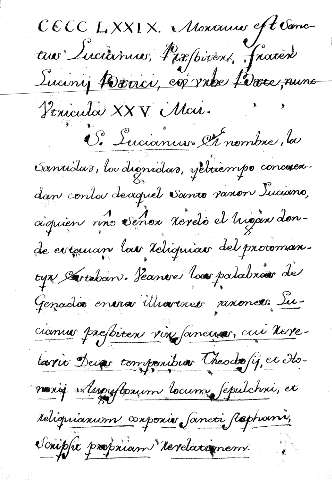 CCCC LXXIX. Moratus est Sanc-
tus Lucianus, Presbiter, frater
Lucinij Betici, ex urbe Betice, nunc
Utricula XXV Mai.
S. Lucianus. El nombre, la
santidad, la dignidad, y el tiempo concuer-
dan con la de aquel Santo varon Luciano,
a quien nrō Señor reveló el lugar don-
de estauan las Reliquias del protomar-
tyr Esteban. Veanse las palabras de
Genadio en sus illustres varones. Lu-
cianus presbiter vir sanctus, cui reve-
lavit Deus temporibus Theodosij, et Ho-
norij Augustorum locum sepulchri, et
reliquiarum corporis Sancti Stephani,
scripsit propriam revelationem.